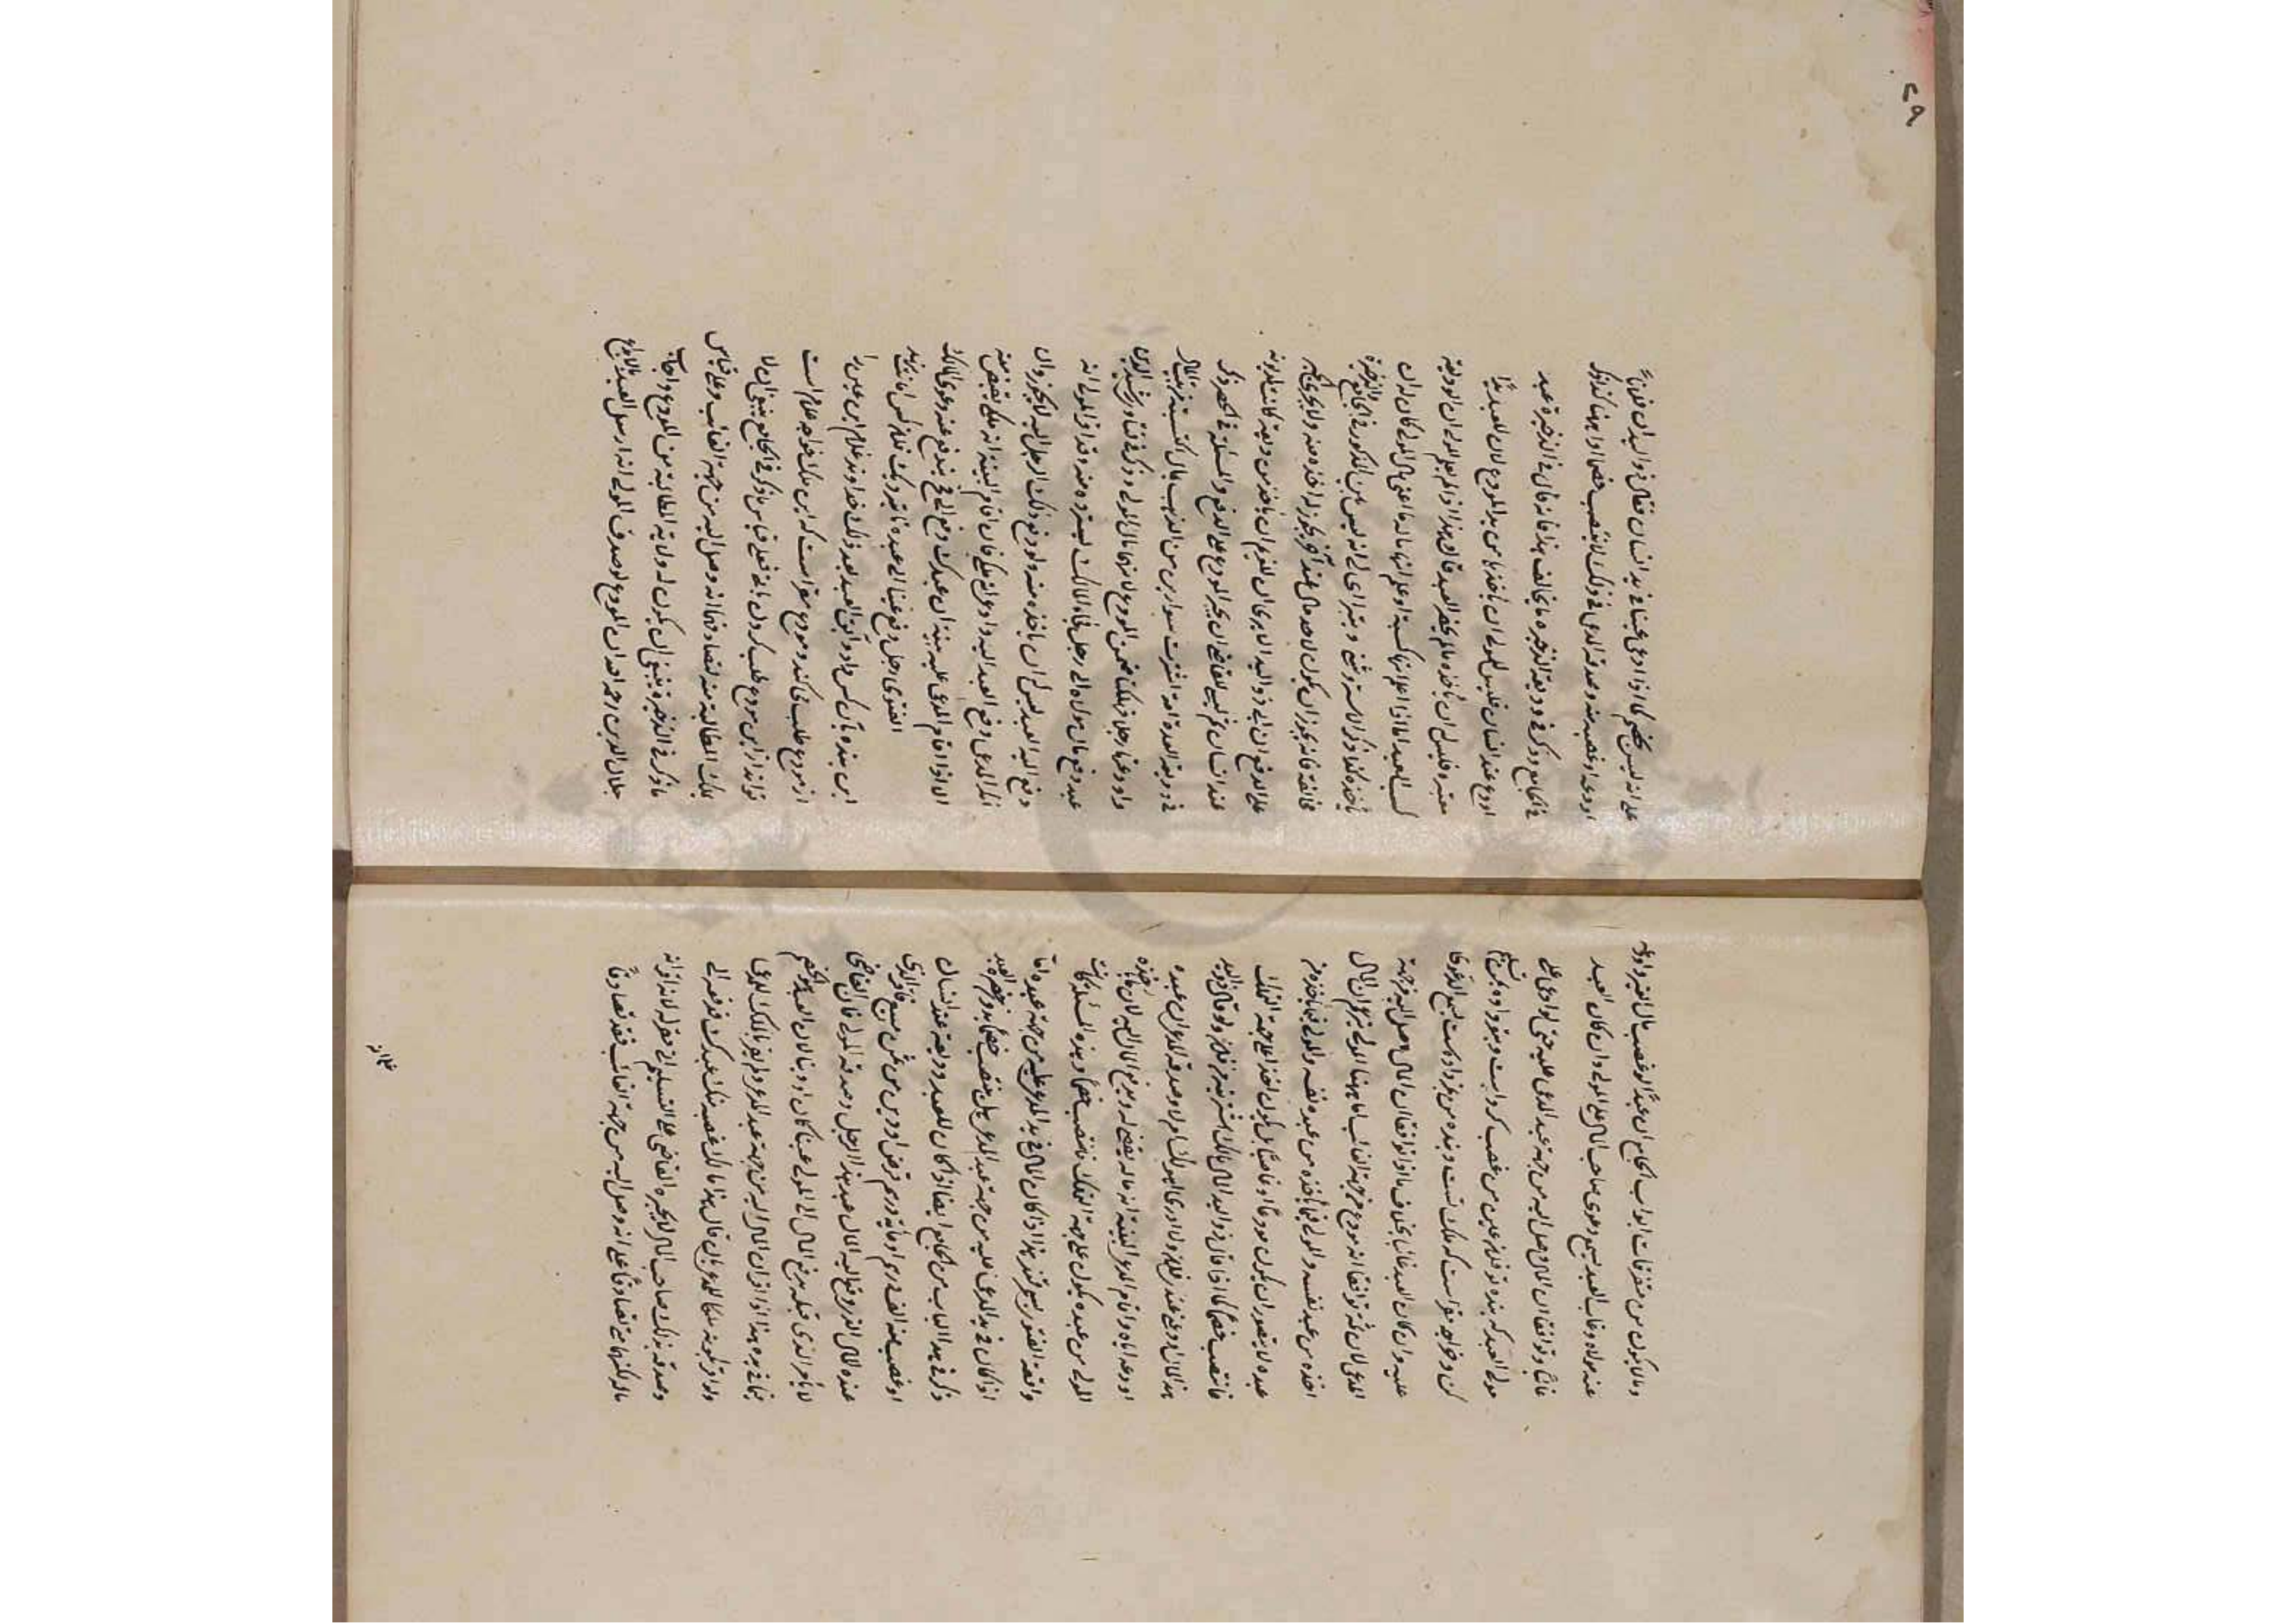 وما یکون من متفرقات ابواب الجامع ان عبدا لو غصب مال الغیر واودعه
عند مولاه وغاب العبد یسمع دعوی صاحب المال علی المولی وان کان العبد
غائبا وتوافقا ان المال وصل الیه من جهة عبد المدعی علیه حتی لو ادعی علی
مولی العبد که بنده تو فلان عین من غصب کرده است وبتو داده تسلیم
کن وخواجه مقر است که ملک تست وبنده من بمن داده است یسمع الدعوی
علیه وان کان العبد غائبا بخلاف ما اذا توافقا ان المال وصل الیه من جهة
المدعی لان ثمة توافقا انه مودع من جهة الغائب اما ههنا المولی یزعم ان المال
اخذه من عبد نفسه والمولی فیما یأخذه من
عبده لا یتصور ان یکون مودعا او غاصبا بل یکون اخذا علی جهة التملک
فانتصب خصما کما اذا قال ذو الید المال مالی اشتریته من فلان ولو قال ذو الید
هذا المال اودعنی عبد فلان ولا ادری اهو لک ام لا وصدقه المدعی ان عبده
اودعه ایاه واقام المدعی البینة انه ماله یقضی له ویدفع المال الیه لان ما اخذه
المولی من عبده یکون علی جهة التملک فانتصب خصما وهذه المسئلة کانت
واقعة الفتوی بسمرقند هذا اذا کان المال فی ید المدعی علیه من جهة عبده اما
اذا کان فی ید المدعی علیه من جهة عبد المدعی هل ینتصب خصما بدون حضرة العبد
ذکر فی هذا الباب من الجامع ایضا اذا کان للعبد ودیعة عند انسان
او غصب منه الف درهم او مایة درهم قرض او دین من ثمن مبیع فاقر الذی
عنده المال انه دفع الیه المال عبد هذا الرجل وصدقه المولی فان القاضی
لا یأمر الذی قبله بدفع المال الی المولی عینا کان او دینا لان العبد هو الخصم
فیما فی یده هذا اذا اقر ان المال الیه من جهة عبد المدعی ولم یقر بالملک للمدعی
ولو اقر بکونه ملکا للمدعی بان قال هذا مالک غصبه منک عبدک فدفعه الی
وصدقه بذلک صاحب المال لا یجبره القاضی علی التسلیم الی لانه اقر انه
ماله لکنهما تصادقا علی انه وصل الیه من جهة الغائب فقد تصادقا
علی انه
٤٩
علی انه لیس بخصم کما اذا ادعی عینا فی ید انسان فقال ذو الید ان فلانا
اودعه او غصبه منه وصدقه المدعی فی ذلک لا ینتصب خصما وههنا کذلک
فی الجامع وذکر فی ودیعة الذخیرة ما یخالف هذا فانه قال فی الذخیرة عبد
اودع عند انسان فلیس للمولی ان یأخذها من ید المودع لان للعبد یدا
معتبرة فلیس له ان یأخذه ما لم یحضر العبد قالوا هذا اذا لم یعلم المولی ان الودیعة
کسب العبد اما اذا علم انها کسبه او علم انها ماله اعنی مال المولی کان له ان
یأخذه کذا ذکر الاستروشنی
مخالفة فانه یجوز ان یکون لاحد مال عند آخر یجوز له اخذه منه ولا یجبر
علی الدفع الا یری ان للغریم ان یأخذ من ودیعة کانت لمدیونه
عند انسان ثم لیس للقاضی ان یجبر المودع علی الدفع والمسئلة فی
فی ودیعة العدة امة اشترت سوارین من الذهب بمال اکتسبته فی بیت
واودعتها رجلا فهلک ضمن المودع لانها مال المولی وذکر فی فتاوی رشید الدین
عبد دفع مال مولاه الی رجل فجاء المالک لیسترده منه وقد اقر المولی انه
دفع الیه العبد لیس له ان یأخذه منه ولو دفع ذلک الرجل الیه لا یجوز وان
انکر المدعی دفع العبد الیه وادعی انه ملکی فان اقام البینة انه ملکی یقبض منه
الا اذا اقام المدعی علیه بینة ان عبدک دفع الی فیندفع عنه دعوی المالک
الفتوی رجل دفع عینا الی عبده
این بنده بآن کس داد وآبق العبد بعد ذلک خداوند غلام این عین را
از مودع طلب می کند ومودع مقر است که این ملک خواجه غلام است
تواند از این مودع طلب کردن یا نی فعلی قیاس ما ذکر فی الجامع ینبغی ان لا
یملک المطالبة منه لتصادقهما انه وصل الیه من جهة الغائب وعلی قیاس
ما ذکر فی الذخیرة ینبغی ان یکون له ولایة المطالبة من المودع واجاب
جلال الدین رحمه الله ان المودع لو صدق المولی انه ارسل العبد للایداع